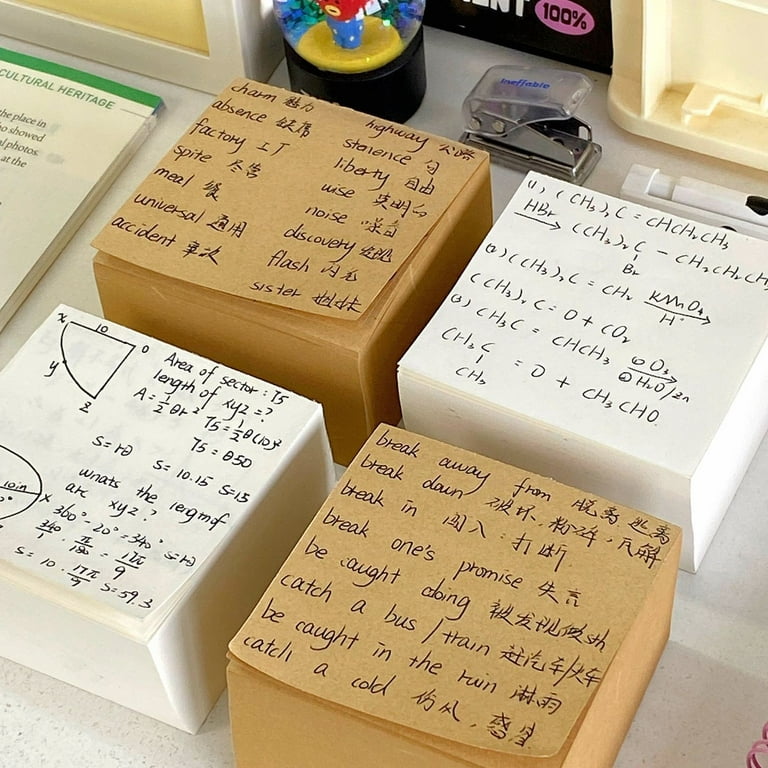 CULTURAL HERITAGE
the place in
ho showed
al photos.
at the
100%
Ineffable
charm 魅力
absence 缺席
factory 工厂
spite 尽管
meal 餐
universal 通用
accident 事故
highway 公路
stenence 句
liberty 自由
wise 英明
noise 噪音
discovery 发现
flash 闪光
sister 姐妹
(1) (CH3)2C = CHCH2CH3
HBr → (CH3)2C - CH2CH2CH3
Br
(2) (CH3)2C = CH2 KMnO4 / H+ →
(CH3)2C = O + CO2
(3) CH3C = CHCH3 ① O3 ② H2O/Zn
CH3C = O + CH3CHO
CH3
x 10 O
y
z
Area of sector: 75
length of xyz = ?
A = 1/2 θr²
75 = 1/2 θ(10)²
75 = θ50
s = rθ s = 10.15 s = 15
whats the length of
arc xyz?
360° - 20° = 340° s = rθ
340/1 · π/180 = 17π/9
s = 10 · 17π/9 s = 59.3
10in x
break away from 脱离 逃离
break down 破坏,粉碎,瓦解
break in 闯入:打断
break one's promise 失言
be caught doing 被发现做sth
catch a bus / train 赶汽车/火车
be caught in the rain 淋雨
catch a cold 伤风,感冒